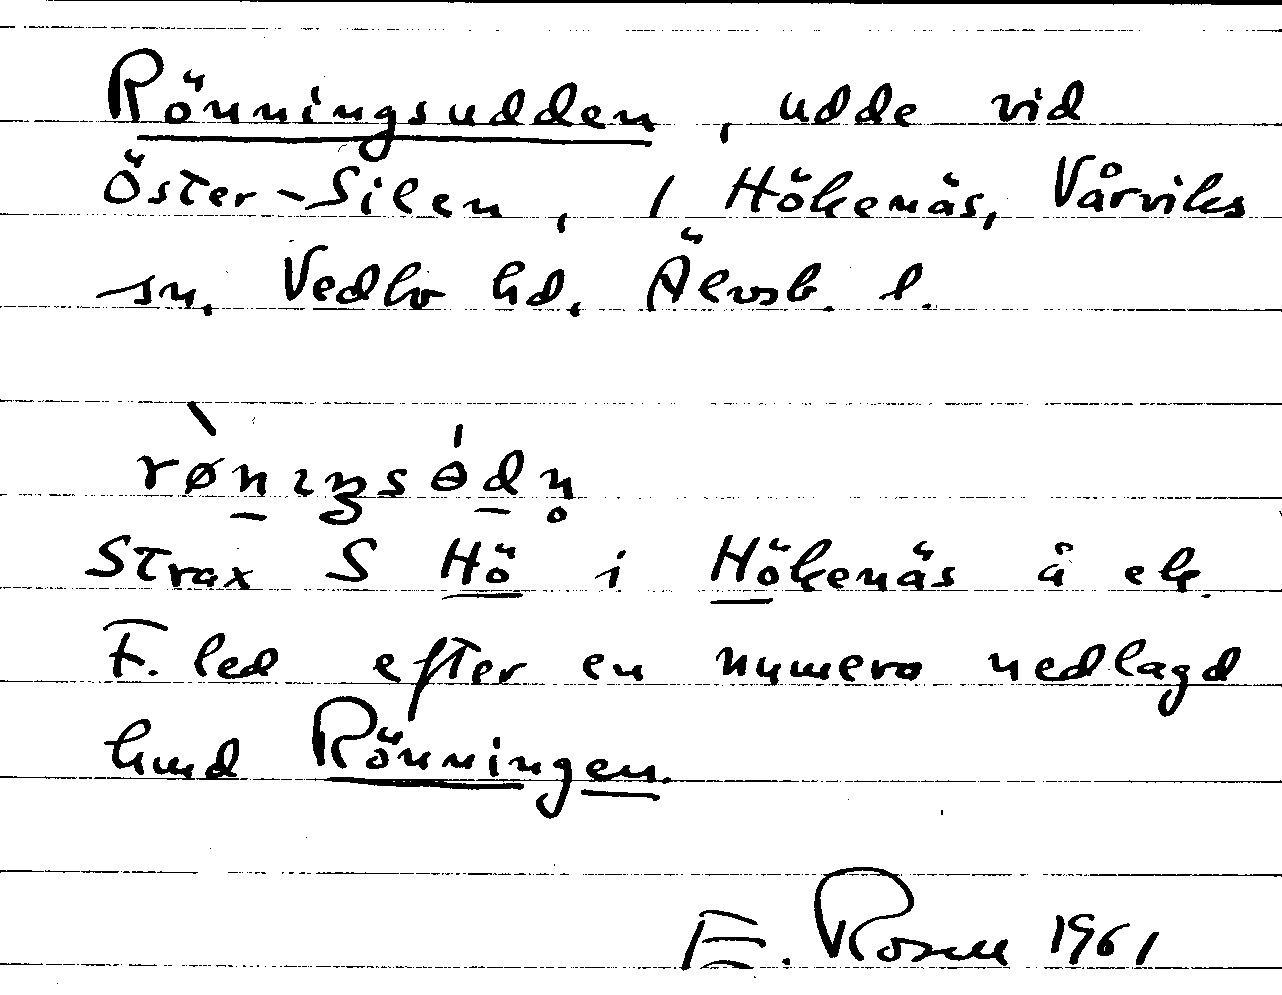 Rönningsudden, udde vid
Öster-Silen, / Hökenäs, Vårviks
sn, Vedbo hd, Älvsb. l.
rø̀nıŋsɵ́dn̥
Strax S Hö i Hökenäs å ek.
F. led efter en numera nedlagd
hmd Rönningen.
E. Rosell 1961